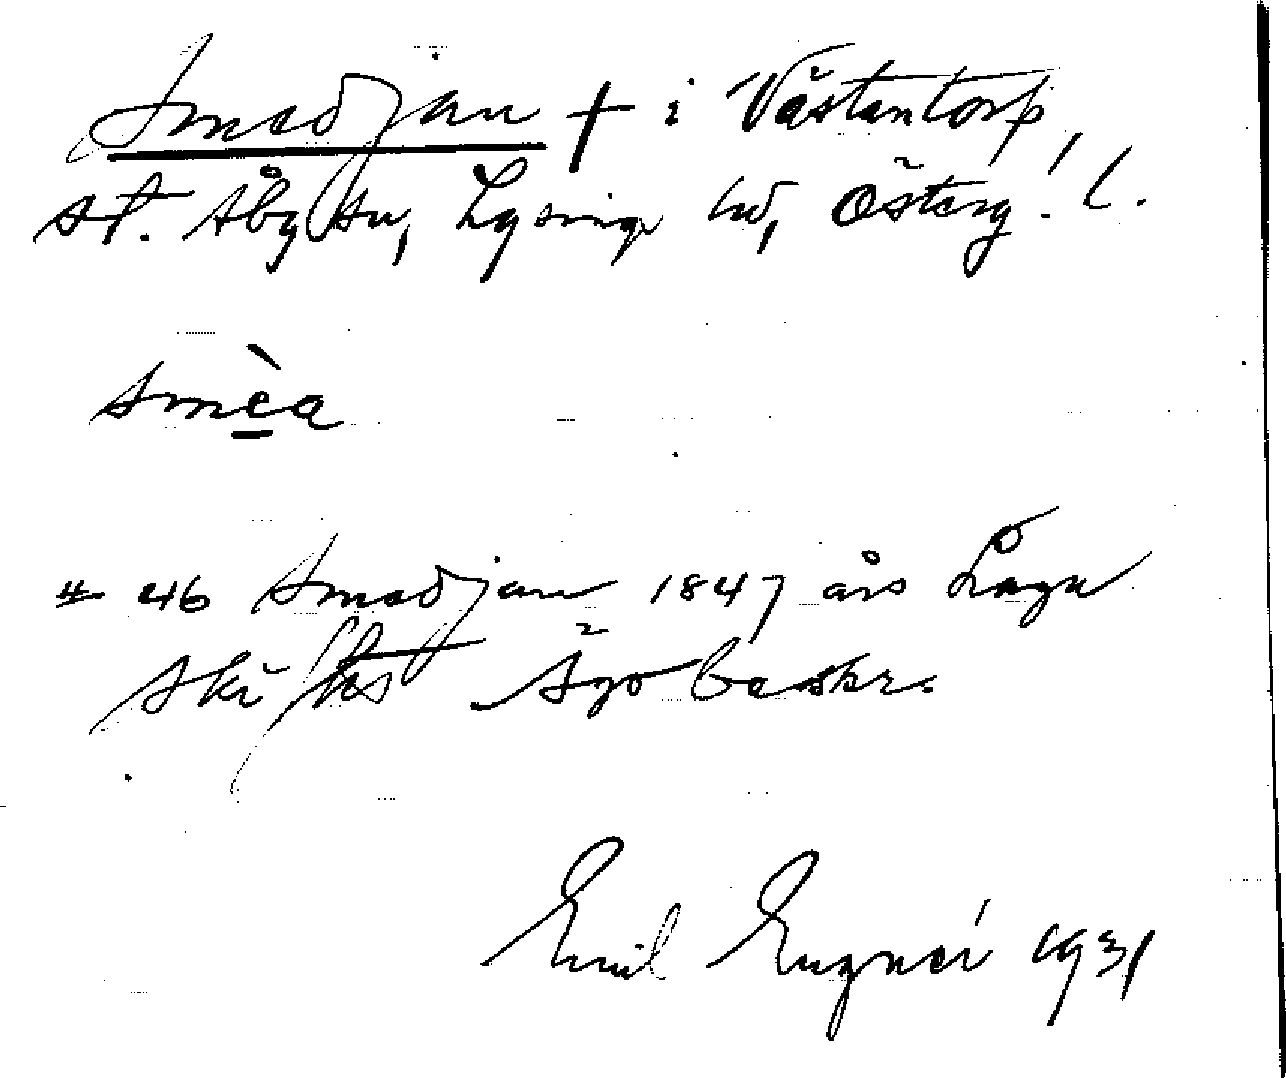 Smedjan † i Västantorp,
St. Åby sn, Lysings hd, Österg. l.
smèa
# 46 Smedjan 1847 års Laga
skifts Ägobeskr.
Emil 1931